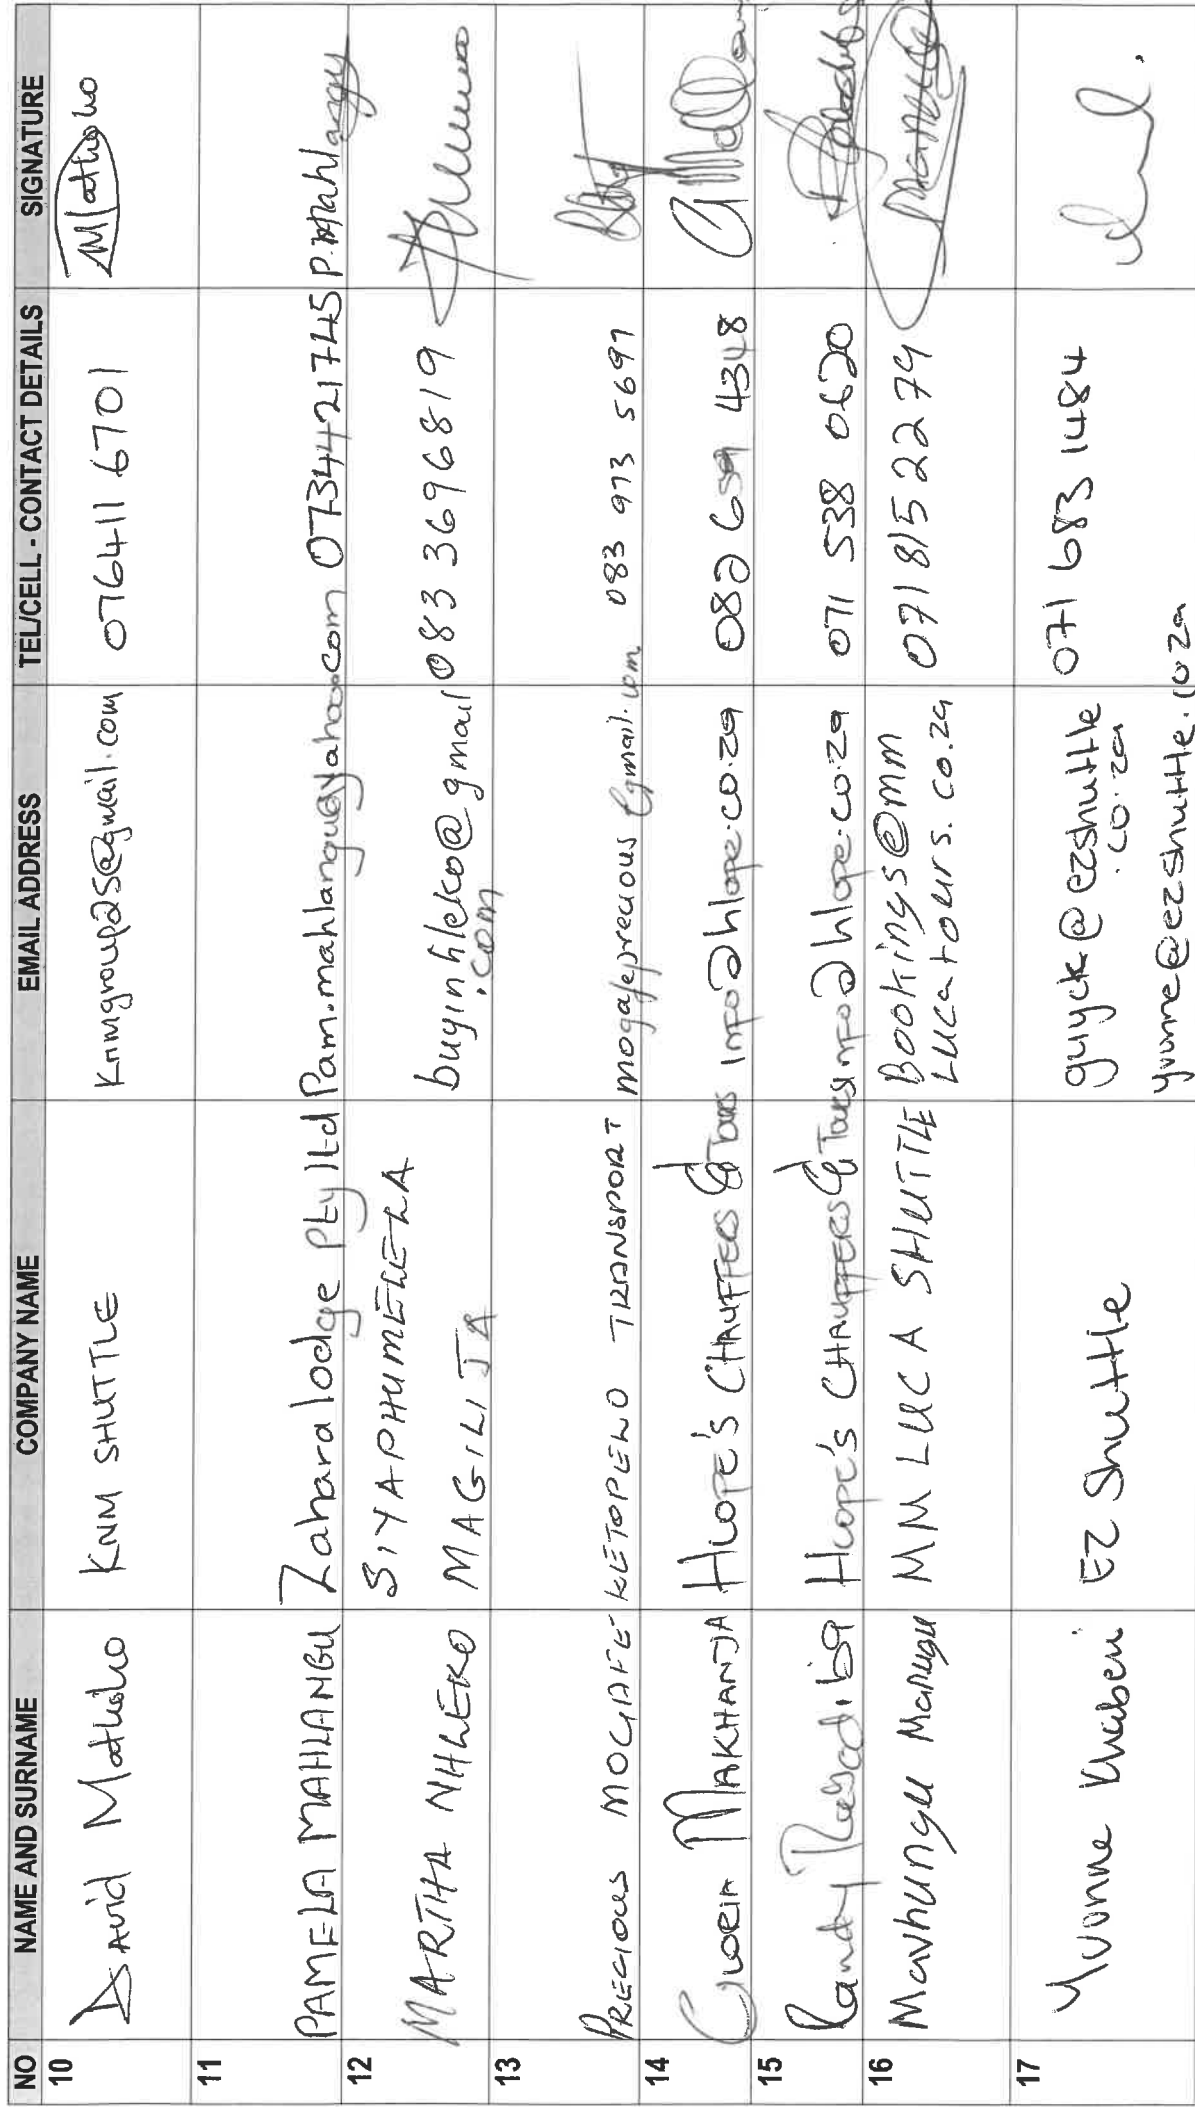 NO NAME AND SURNAME COMPANY NAME EMAIL ADDRESS TEL/CELL - CONTACT DETAILS SIGNATURE
10 David Mathoho KNM SHUTTLE Knmgroup25@gmail.com 076411 6701 Mathoho
11 PAMELA MAHLANGU Zahara lodge Pty ltd Pam.mahlangu@yahoo.com 0734421745 P.Mahlangu
12 MARTHA NHLEKO SIYAPHUMELELA
MAGILITA buyinhleko@gmail
.com 083 3696819
13 PRECIOUS MOGAFE KETOPELO TRANSPORT mogafeprecious@gmail.com 083 973 5697
14 GLORIA MAKHANJA HLOPE'S CHAUFFERS & TOURS info@hlope.co.za 082 659 4348
15 Randy HLOPE'S CHAUFFERS & TOURS info@hlope.co.za 071 538 0620
16 Mavhungu Manugu MM LUCA SHUTTLE Bookings@mm
Lucatours.co.za 0718152279
17 Yvonne Khabeni EZ Shuttle guyck@ezshuttle
.co.za 071 683 1484
yvonne@ezshuttle.co.za